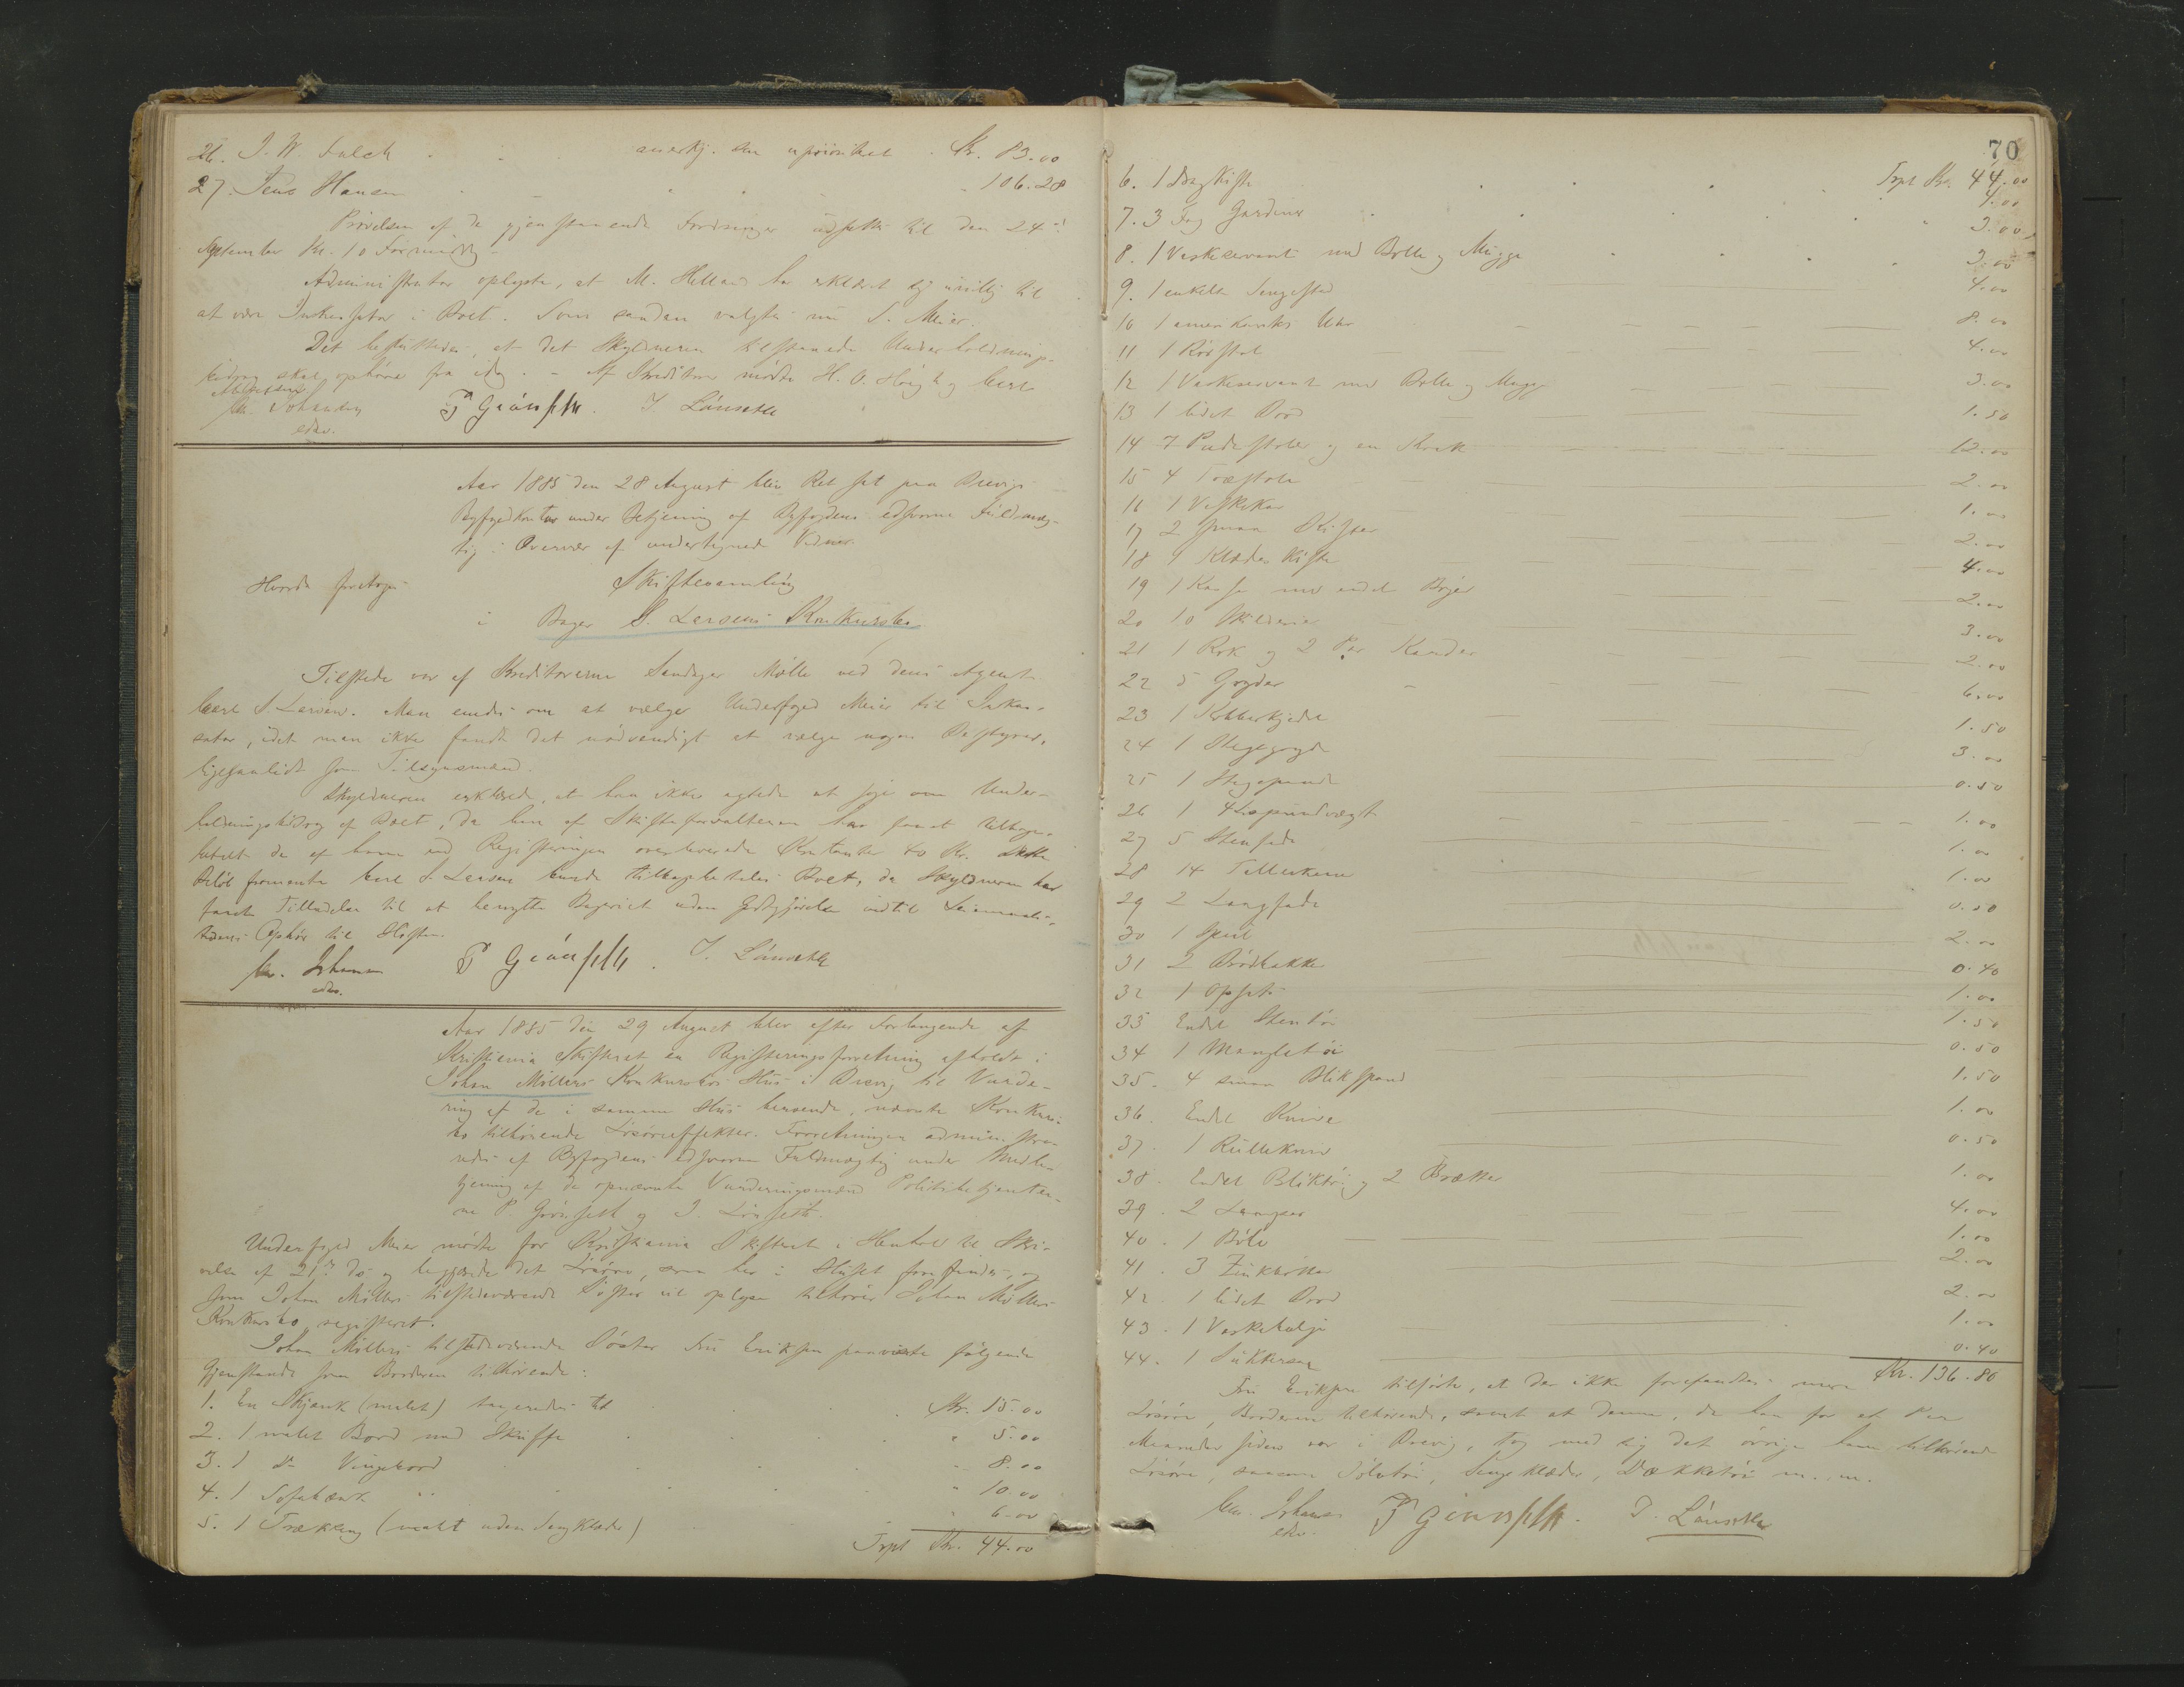 26. J. W. Falck . . anerkj. som uprioritet . Kr. 83.00
27. Jens Hansen - - " " - - 106.28
Prøvelsen af de gjenstaaende Fordringer udsættes til den 24de
September Kl. 10 Formiddag.
Administrator oplyste, at M. Helland har erklæret sig uvillig til
at være Inkassator i Boet. Som saadan valgtes nu S. Meier.
Det besluttedes, at det Skyldneren tilstaaede Underholdnings-
bidrag skal ophøre fra idag. - Af Kreditorer mødte H. O. Høigh og Carl
Abrahamsen
Chr. Johansen P Grönseth. J. Lönseth
edsv.
Aar 1885 den 28 August blev Ret sat paa Brevigs
Byfogedkontor under Betjening af Byfogdens edsvorne Fuldmæg-
tig i Overvær af undertegnede Vidner.
Hvorda foretoges Skiftesamling
i Bager S. Larsens Konkursbo.
Tilstede var af Kreditorerne Sandager Mølle ved dens Agent
Carl S. Larsen. Man enedes om at vælge Underfoged Meier til Inkas-
sator, idet man ikke fandt det nødvendigt at vælge nogen Bestyrer,
ligesaalidt som Tilsynsmænd.
Skyldneren erklærede, at han ikke agtede at søge om Under-
holdningsbidrag af Boet, da han af Skifteforvalteren har faaet tilbage-
betalt de af ham ved Registreringen overleverede Kontanter 40 Kr. Dette
Beløb formente Carl S. Larsen burde tilbagebetales Boet, da Skyldneren har
faaet Tilladelse til at benytte Bageriet uden Godtgjørelse indtil Leiemaals-
tidens Ophør til Høsten.
Chr. Johansen P Grönseth. J. Lönseth
edsv.
Aar 1885 den 29 August blev efter Forlangende af
Kristiania Skifteret en Registreringsforretning afholdt i
Johan Møllers Konkursbos Hus i Brevig til Vurde-
ring af de i samme Hus beroende, nævnte Konkurs-
bo tilhørende Løsøreeffekter. Forretningen administre-
redes af Byfogdens edsvorne Fuldmægtig under Medbe-
tjening af de opnævnte Vurderingsmænd Politibetjente-
ne P. Grönseth og J. Lönseth.
Underfoged Meier mødte for Kristiania Skifteret i Henhold til Skri-
velse af 21de ds og begjærede det Løsøre, som her i Huset forefindes, og
som Johan Møllers tilstedeværende Søster vil oplyse tilhører Johan Møllers
Konkursbo, registreret.
Johan Møllers tilstedeværende Søster Fru Eriksen paaviste følgende
Gjenstande som Boderen tilhørende:
1. En Skjænk (malet) taxeredes til . . . Kr. 15.00
2. 1 malet Bord med Skuffe . . . " 5.00
3. 1 do Vingebord . . . " 8.00
4. 1 Sofabænk . . . " 10.00
5. 1 Trækseng (malt uden Sengklæder) . " 6.00
Trpt Kr. 44.00
70
Trpt Kr. 44.00
6. 1 Dragkiste . . . . 4.00
7. 3 Fag Gardiner . . . . 3.00
8. 1 Vaskeservant med Bolle og Mugge . . . 3.00
9. 1 enkelt Sengested 4.00
10 1 amerikansk Uhr 8.00
11 1 Rørstol 4.00
12 1 Vaskeservant med Bolle og Mugge 3.00
13 1 lidet Bord 1.50
14 7 Pudestoler og en Krak 12.00
15 4 Træstole 2.00
16 1 Vaskekar 1.00
17 2 smaa Kister 2.00
18 1 Klædeskiste 4.00
19 1 Kasse med endel Bøger 2.00
20 10 Skilderier 3.00
21 1 Rok og 2 Par Karder 2.00
22 5 Gryder 6.00
23 1 Kobberkjedel 1.50
24 1 Stegegryde 3.00
25 1 Stegepande 0.50
26 1 4 Lispundvægt 1.00
27 5 Stenfade 1.00
28 14 Tallerkener 1.00
29 2 Langfade 0.50
30 1 Speil 2.00
31 2 Brødbakker 0.40
32 1 Opsats 1.00
33 Endel Stentøi 1.50
34 1 Mangletøi 0.50
35. 4 smaa Blikspand 1.50
36 Endel Knive 1.00
37. 1 Rullekniv 0.50
38. Endel Bliktøi og 2 Brætter 1.00
39. 2 Lamper 4.00
40. 1 Bile 1.00
41. 3 Zinkbøtter 2.00
42. 1 lidet Bord 2.00
43. 1 Vaskebalje 1.00
44. 1 Sukkersax 0.40
Kr. 136.80
Fru Eriksen tilføiede, at der ikke forefandtes mere
Løsøre, Boderen tilhørende, samt at denne, da han for et Par
Maaneder siden var i Brevig, tog med sig det øvrige ham tilhørende
Løsøre, saasom Sølvtøi, Sengklæder, Dækketøi m. m.
Chr. Johansen P Grönseth. J. Lönseth
edsv.